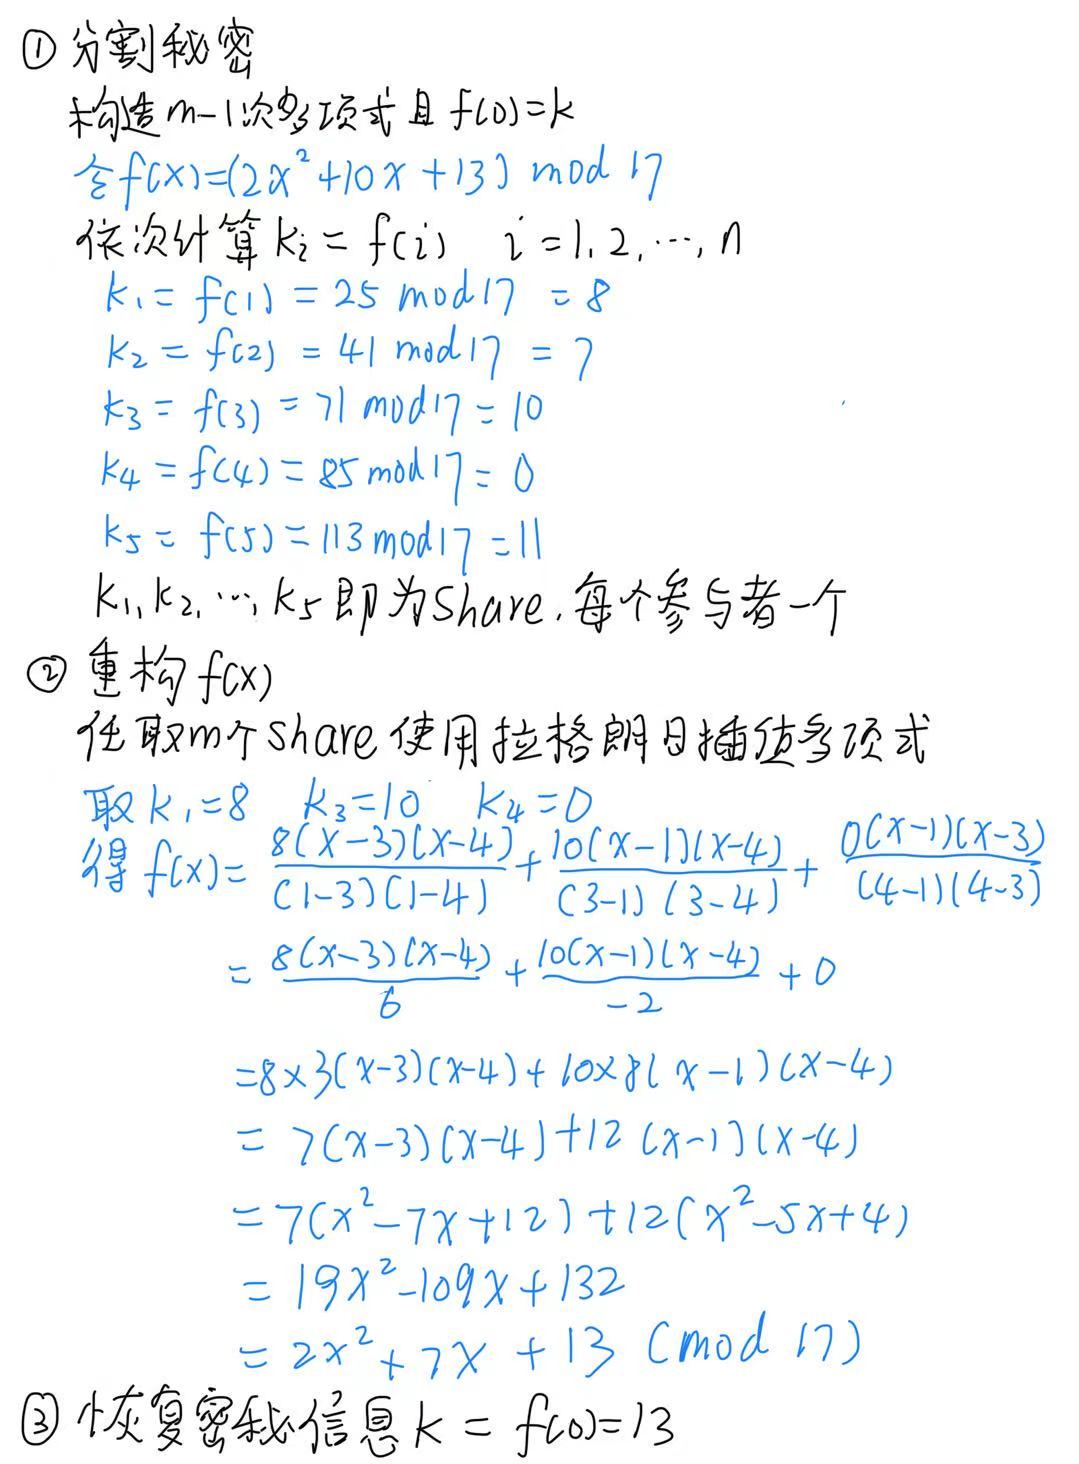 ① 分割秘密
构造m-1次多项式且 f(0)=k
令f(x)=(2x²+10x+13) mod 17
依次计算 ki = f(i)   i=1,2,…,n
k₁= f(1) = 25 mod17 = 8
k₂ = f(2) = 41 mod17 = 7
k₃ = f(3) = 71 mod17 = 10
k₄ = f(4) = 85 mod17 = 0
k₅ = f(5) = 113 mod17 = 11
k₁,k₂,…,k₅ 即为Share.每个参与者一个
② 重构 f(x)
任取m个Share使用拉格朗日插值多项式
取 k₁=8  k₃=10  k₄=0
得 f(x)= 8(x-3)(x-4)/(1-3)(1-4) + 10(x-1)(x-4)/(3-1)(3-4) + 0(x-1)(x-3)/(4-1)(4-3)
= 8(x-3)(x-4)/6 + 10(x-1)(x-4)/-2 + 0
=8×3(x-3)(x-4)+10×8(x-1)(x-4)
= 7(x-3)(x-4)+12(x-1)(x-4)
=7(x²-7x+12)+12(x²-5x+4)
= 19x²-109x+132
= 2x²+7x+13 (mod 17)
③ 恢复密秘信息 k = f(0)=13